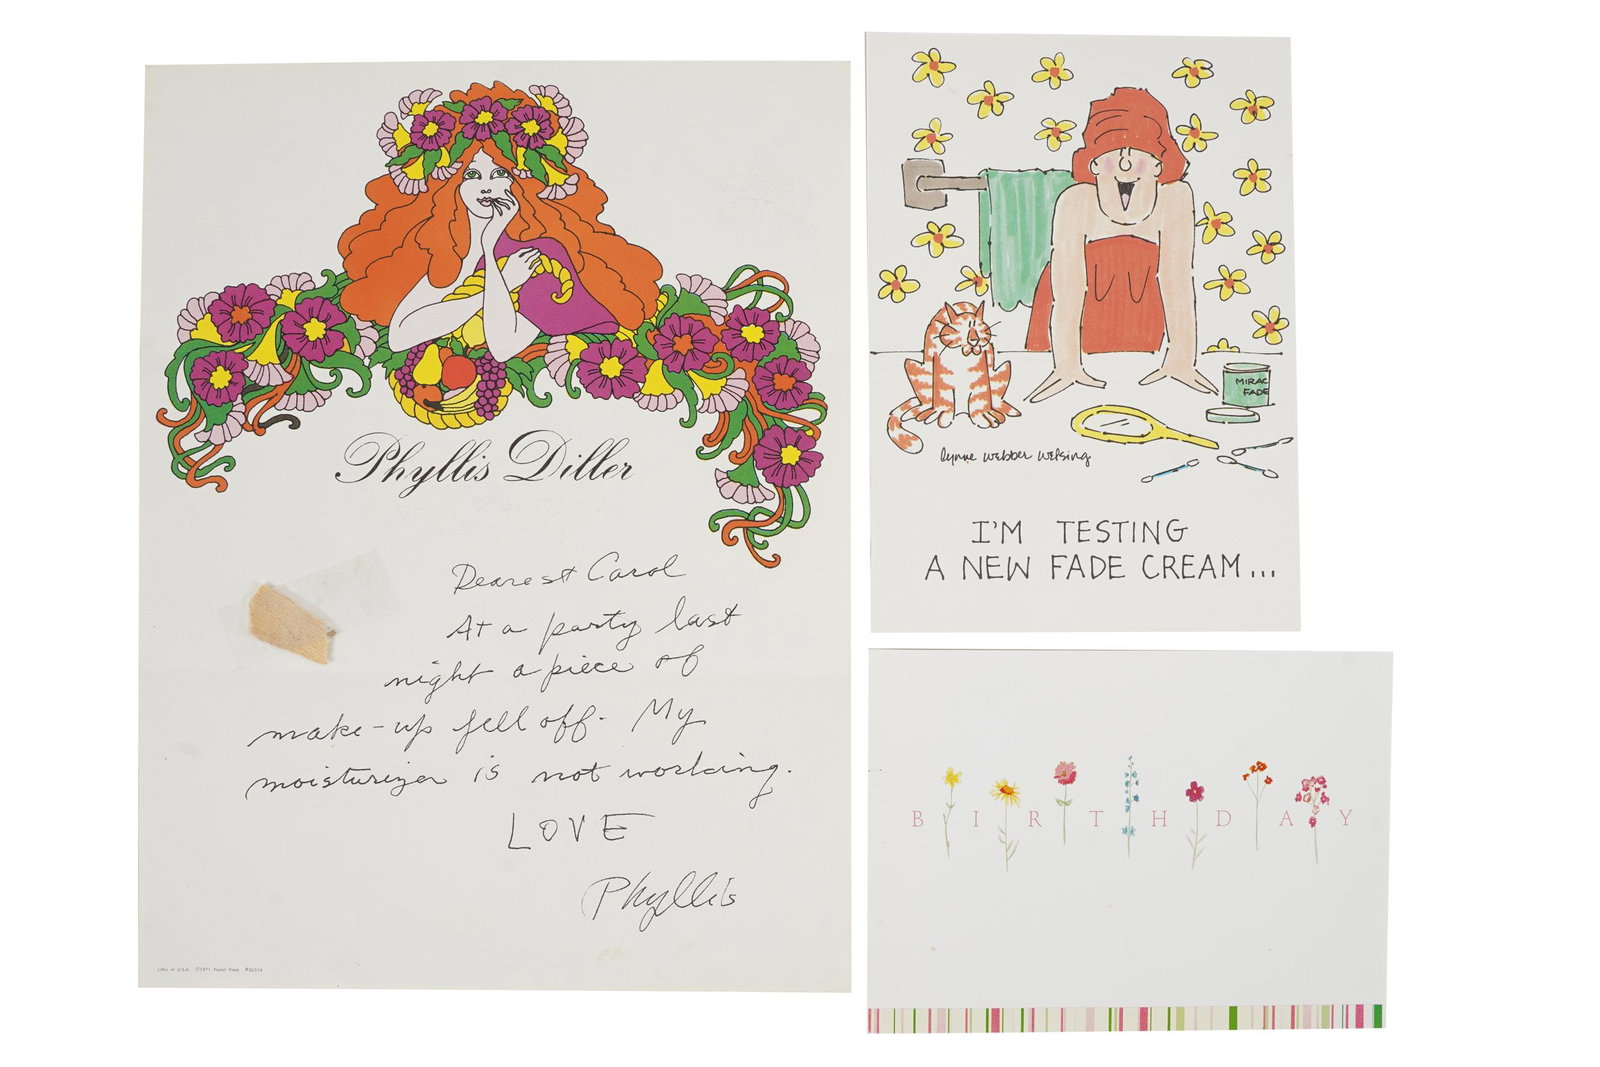 Phyllis Diller
Dearest Carol
At a party last
night a piece of
make-up fell off. My
moisturizer is not working.
LOVE
Phyllis
Litho in U.S.A. ©1971 Portal Press
MIRAC
FADE
lynne webber welsing
I'M TESTING
A NEW FADE CREAM...
BIRTHDAY